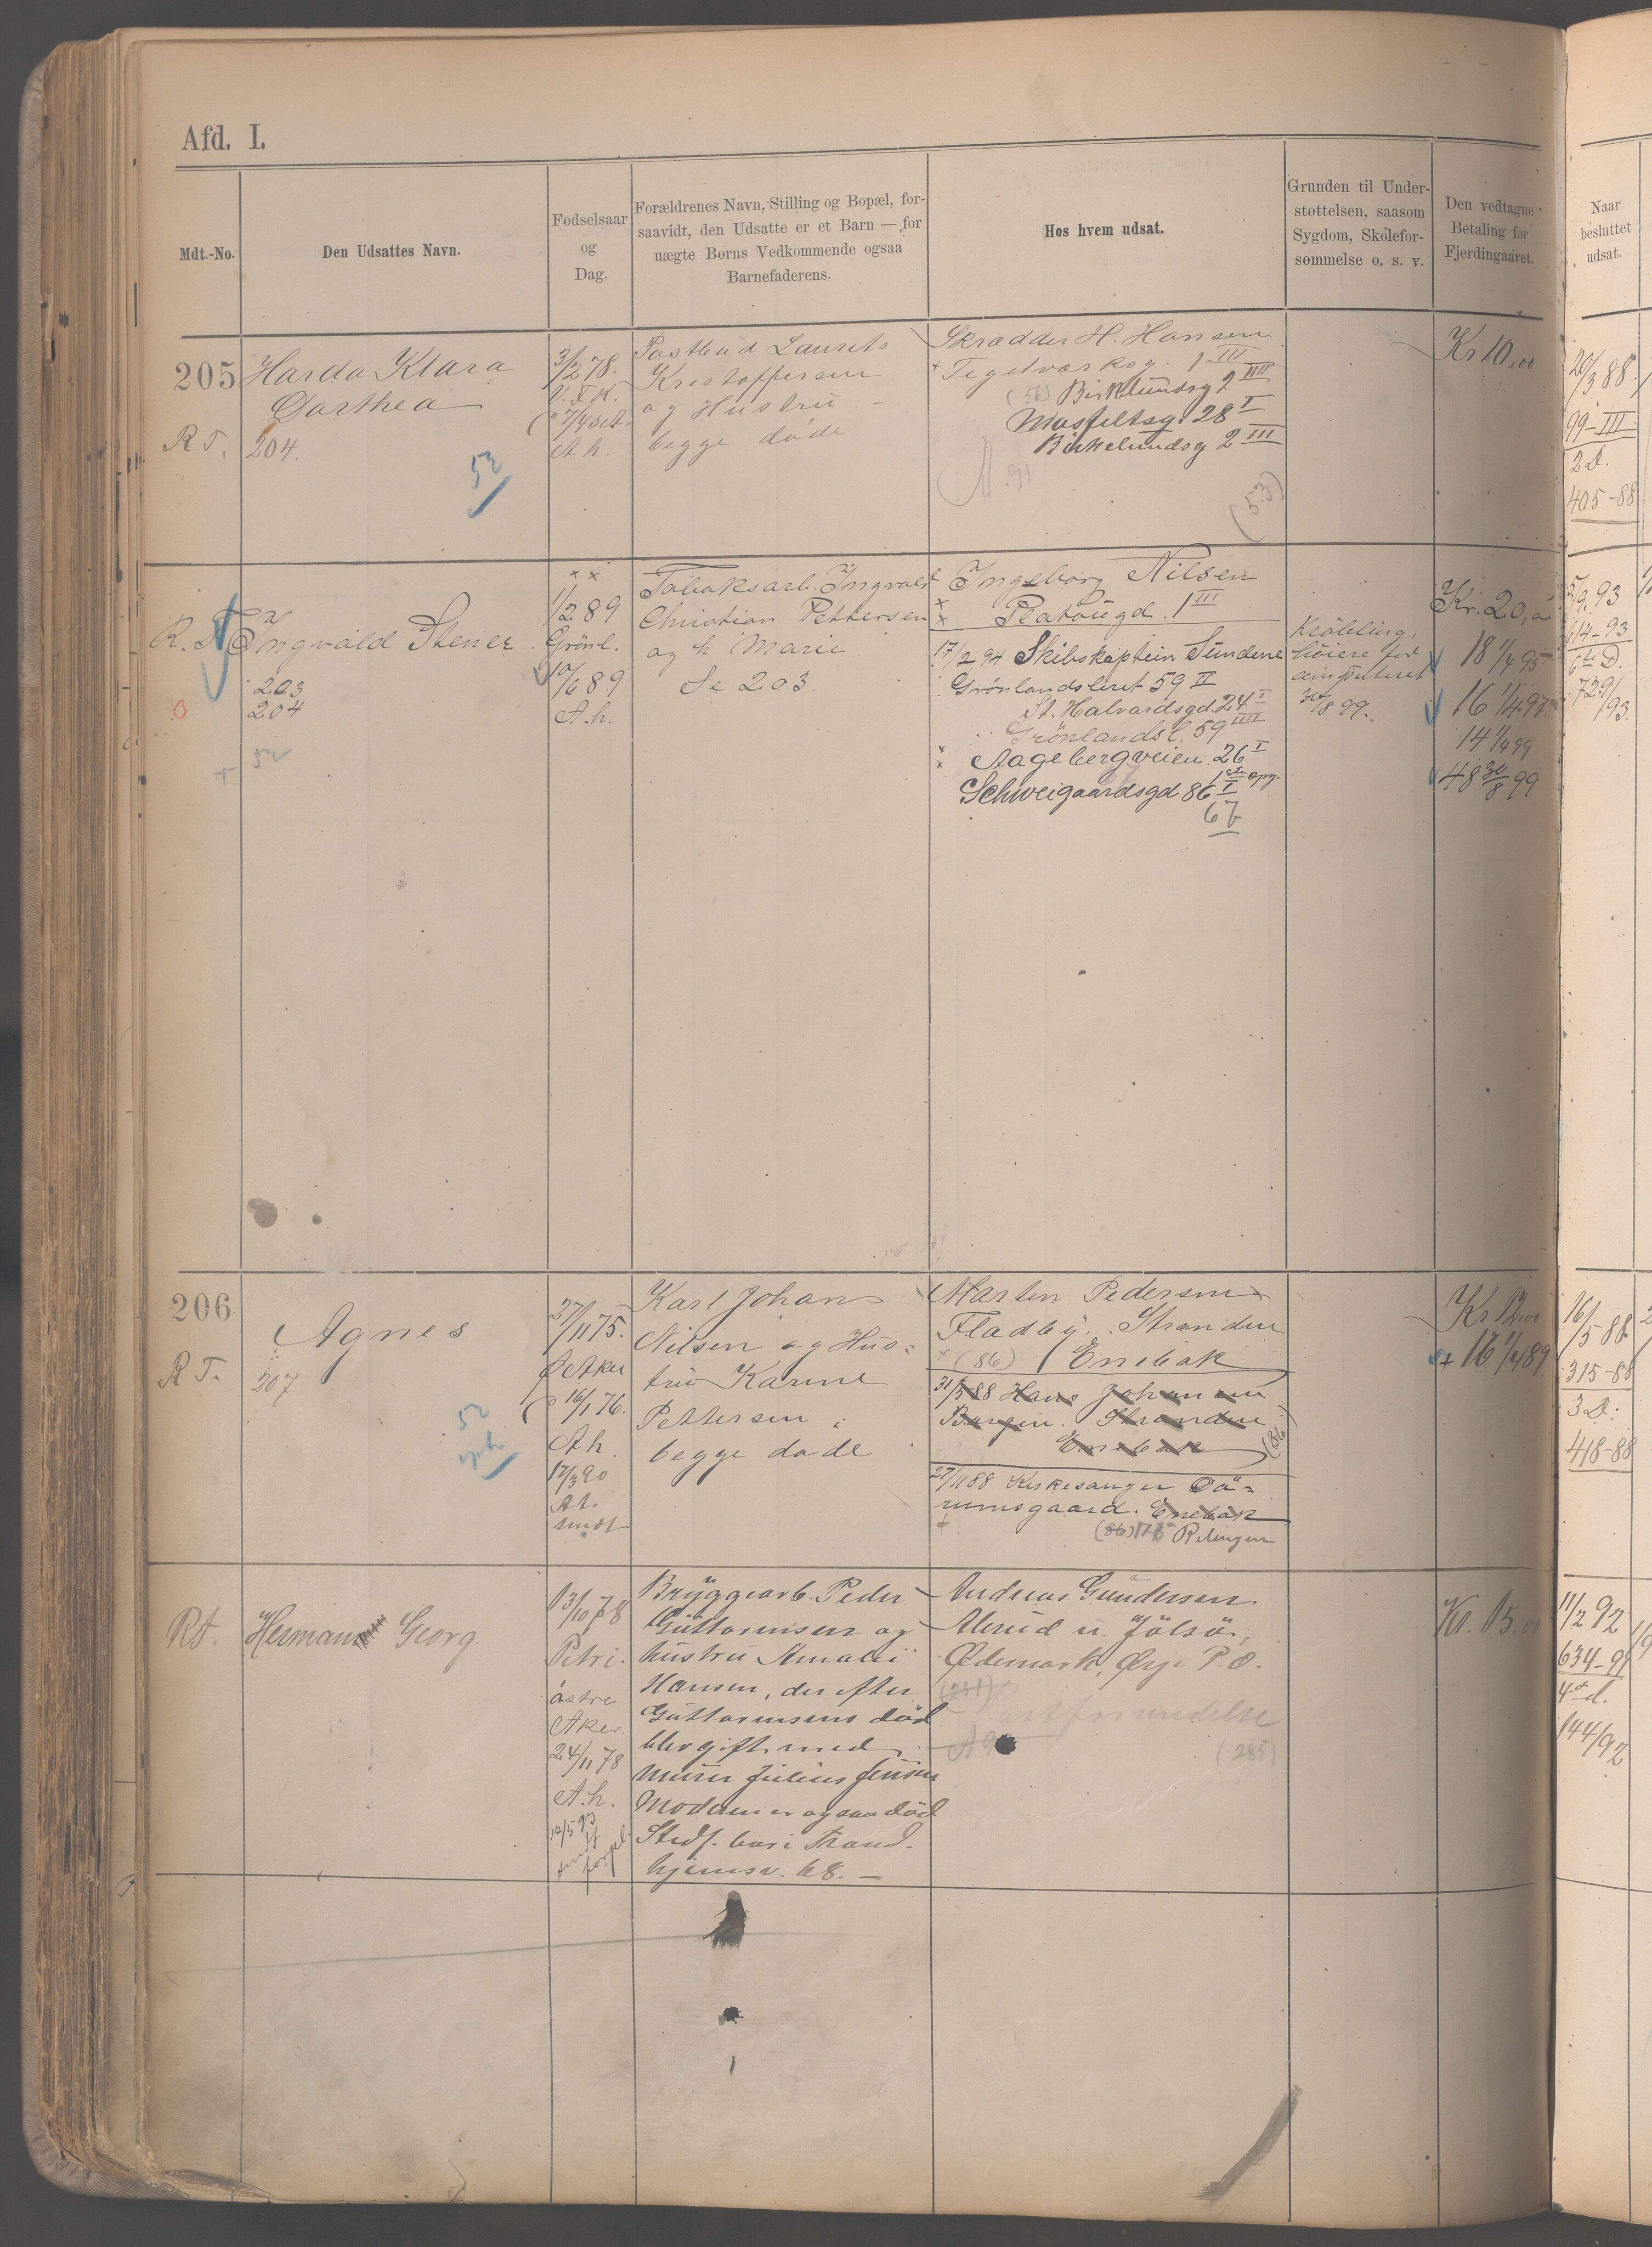 Afd. I.
Mdt.-No.
Den Udsattes Navn.
Fødselsaar
og
Dag.
Forældrenes Navn, Stilling og Bopæl, for-
saavidt, den Udsatte er et Barn — for
uægte Børns Vedkommende ogsaa
Barnefaderens.
Hos hvem udsat.
Grunden til Under-
støttelsen, saasom
Sygdom, Skolefor-
sømmelse o. s. v.
Den vedtagne
Betaling for
Fjerdingaaret.
Naar
besluttet
udsat.
205
R T.
Harda Klara
Darthea
204.
52
3/2 78.
A.h.
Postbud Laurits
Kristoffersen
og Hustru
begge døde
Skrædder H. Hansen
Tegelværksg. 1 III
(56) Birkelundsg 2 IIII
Mosfeltsg. 28 I
Birkelundsg 2 III
A. 91
(53)
Kr 10,00
20/3 88
99-III
2 d.
405-88
R. T
Ingvald Stener
203
204
52
1/2 89
Grønl.
10/6 89
A.h.
Tobaksarb. Ingvald
Christian Pettersen
og h Marie
Se 203.
Ingeborg Nilsen
Platougd. 1 III
17/2 94 Skibskaptein Sundene
Grønlandsleret 59 II
St. Halvardsgd. 24 I
Grønlandsl. 59 IIII
Aagebergveien 26 I
Schweigaardsgd 86 I
67
Krøbling,
høiere fod
amputeret
30/8 99.
Kr. 20,00
18 1/4 95
16 1/4 97
14 1/4 99
48 30/8 99
5/9 93
614-93
6te D.
729/93
206
R T.
Agnes
207
52
27/11 75.
Ø Aker
16/1 76.
A.h.
17/3 90
A.t.
Karl Johan
Nilsen og Hus-
tru Karine
Pettersen
begge døde
Marten Pedersen
Fladby. Stranden
(86) Enebak
31/5 88 Hans Johansen
Bergen. Stranden
Enebak (86)
27/11 88 Kirkesanger Då-
rumsgaard. Enebak
(86) 175 Rælingen
Kr 12,00
16 1/4 89
16/5 88
315-88
3 D.
418-88
Rt.
Herman Georg.
13/10 78
Petri.
østre
Aker.
24/11 78
A.h.
12/5 93
Bryggearb. Peder
Guttormsen og
hustru Amalie
Hansen, der efter
Guttormsens død
blev gift med
murer Julius Jensen
Moderen er ogsaa død
Stedf. bor i Trond-
hjemsv. 68. —
Andreas Gundersen
Ødemark, Ørje P.O.
(285)
Kr. 15.00
11/2 92
634-91
4de d.
144/92